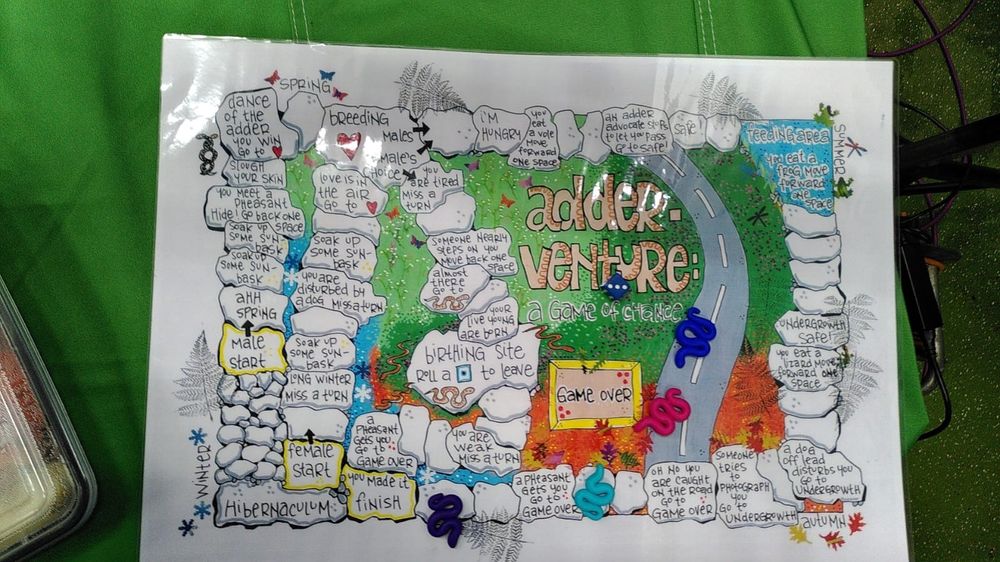 SPRING
dance
of the
adder
you win
go to
SLOUGH
YOUR SKIN
you meet a
pheasant
Hide! Go back one
space
soak up
some sun-
bask
soak up
some sun-
bask
ahh
spring
male
start
breeding
males
male's
choice
love is in
the air
go to
soak up
some sun-
bask
you are
disturbed by
a dog miss a turn
soak up
some sun-
bask
long winter
miss a turn
female
start
Hibernaculum
WINTER
I'm
HUNGRY
you
eat
a vole
move
forward
one space
an adder
advocate stops
to let you pass
Go to safe!
safe!
feeding area
you eat a
frog move
forward
one
space
SUMMER
you
are tired
miss a
turn
someone nearly
steps on you
move back one
space
almost
there
go to
your
live young
are born
birthing site
roll a to leave
adder-
venture:
a game of chance
Game over
undergrowth
safe!
you eat a
lizard move
forward one
space
a dog
off lead
disturbs you
go to
undergrowth
autumn
someone
tries
to
photograph
you
go to
undergrowth
oh no you
are caught
on the road
go to
game over
a pheasant
gets you
go to
game over
you are
weak
miss a turn
a
pheasant
gets you
go to
game over
you made it
finish